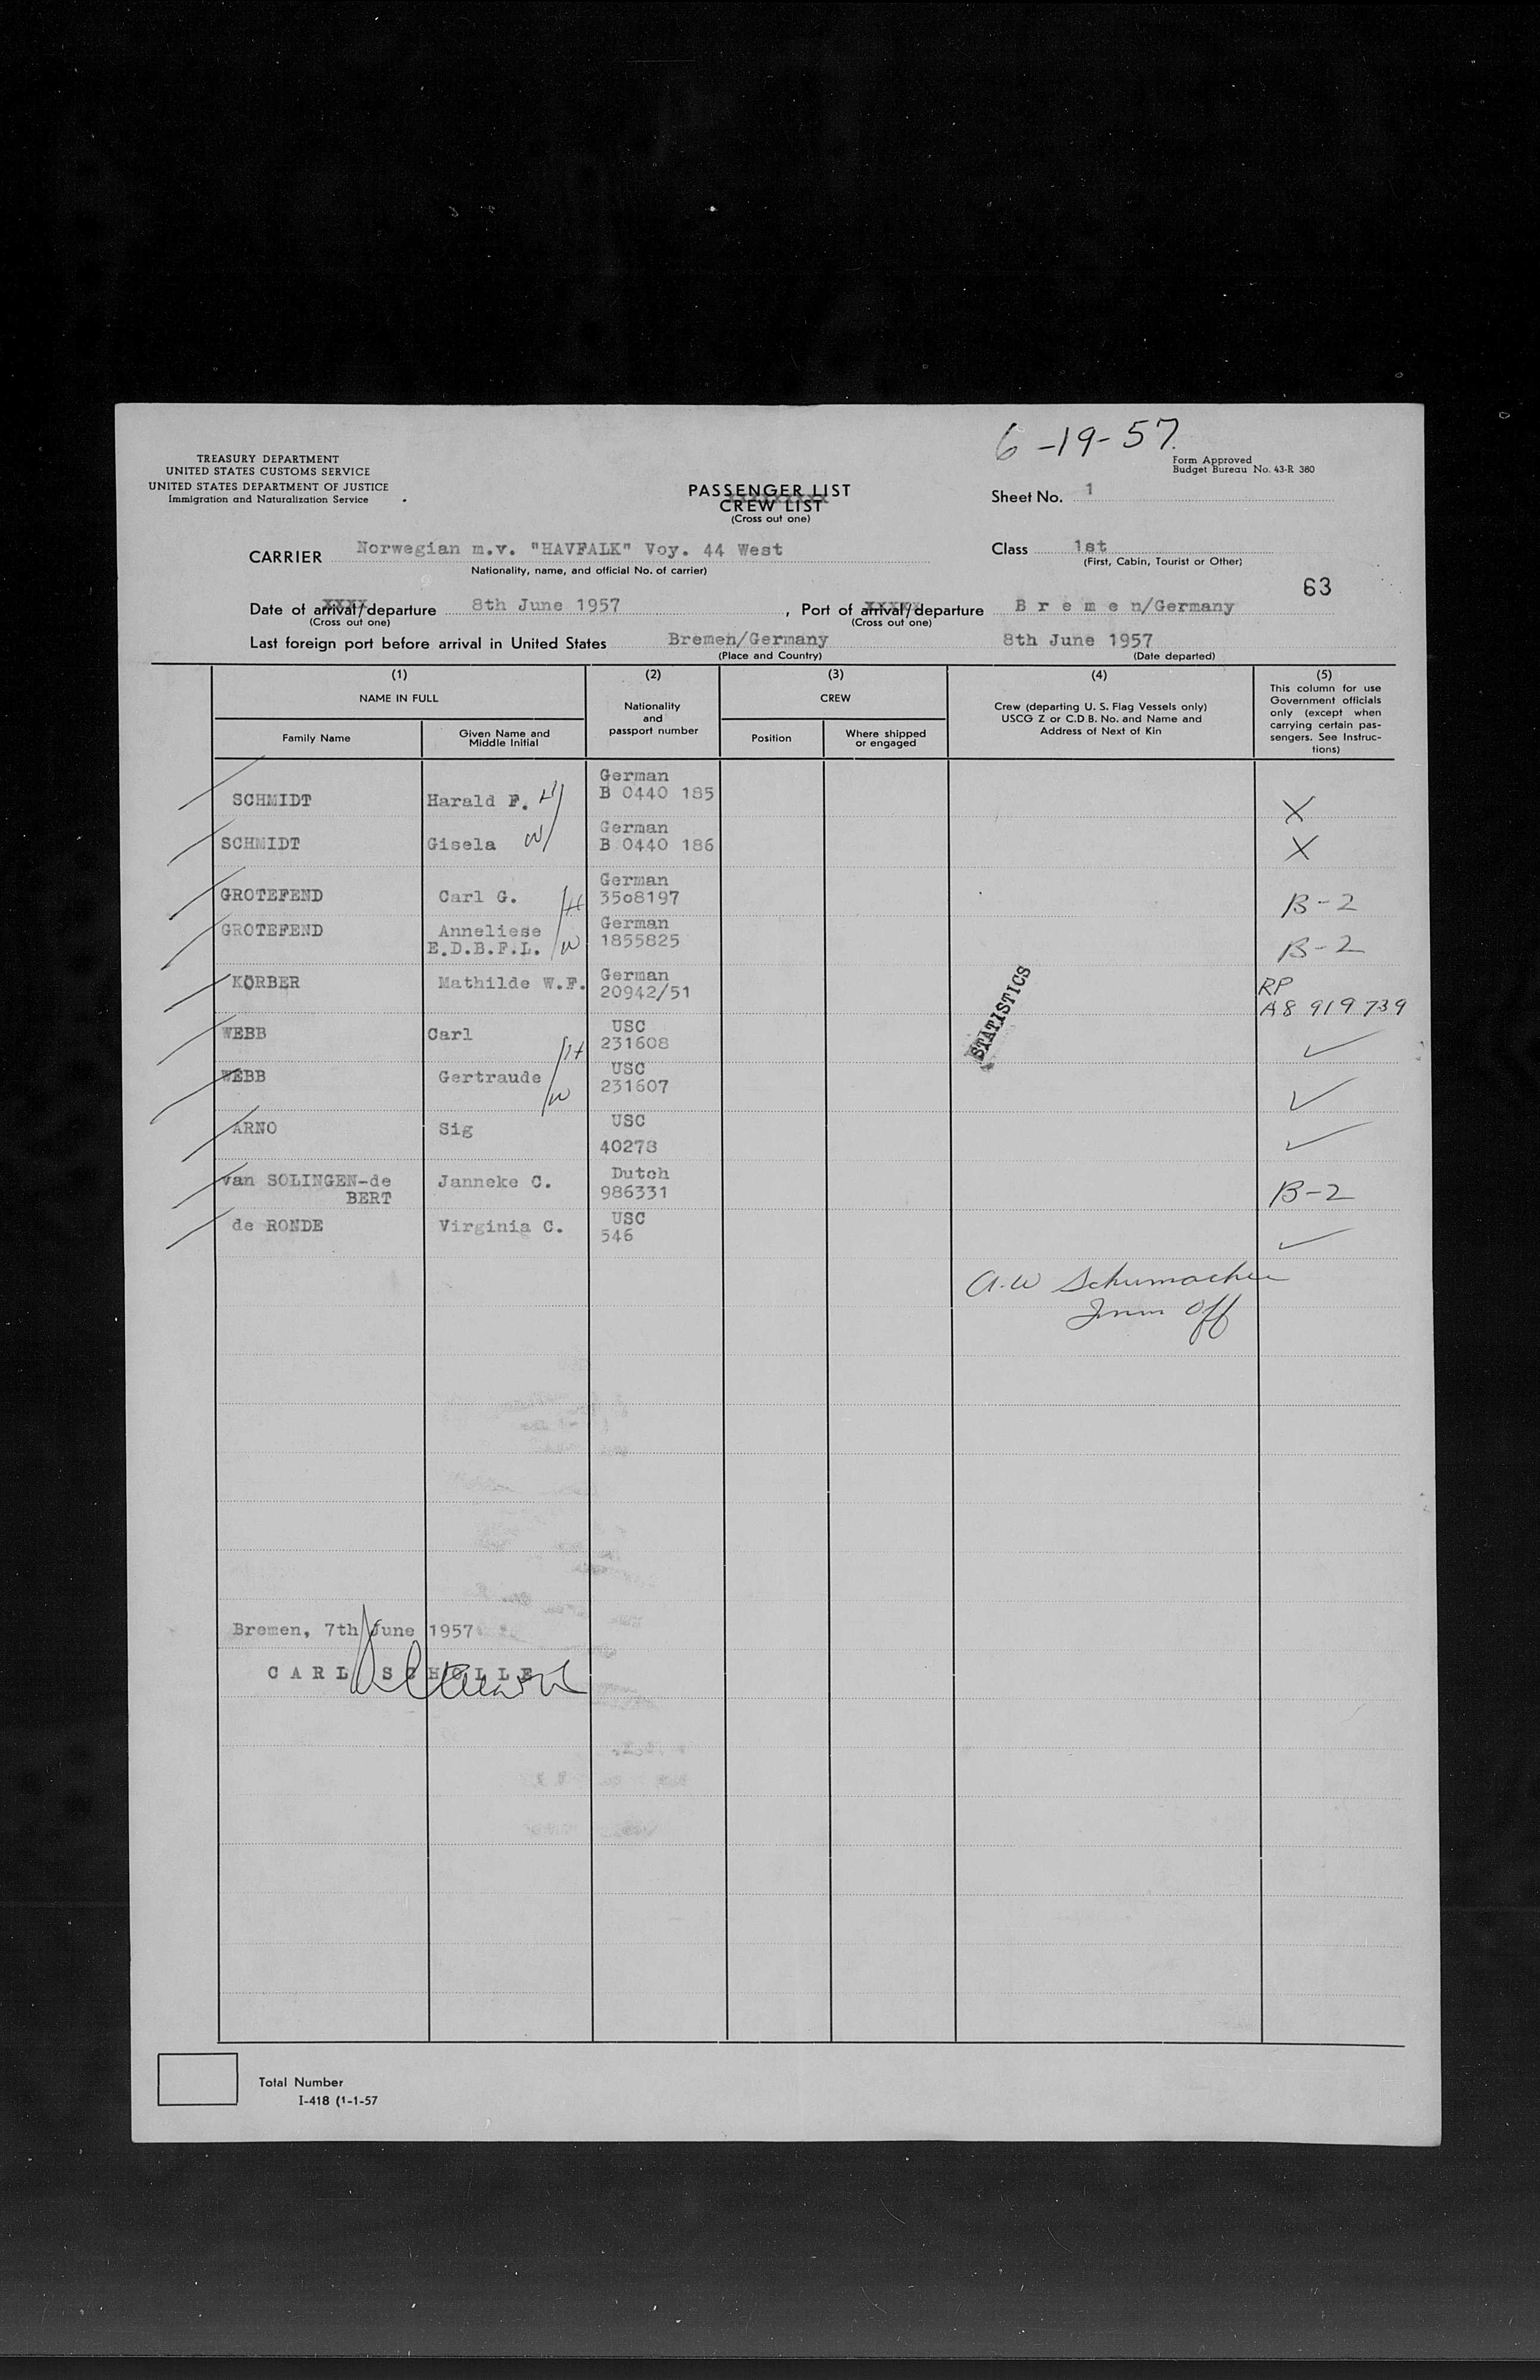 6-19-57.
TREASURY DEPARTMENT
UNITED STATES CUSTOMS SERVICE
UNITED STATES DEPARTMENT OF JUSTICE
Immigration and Naturalization Service
Form Approved
Budget Bureau No. 43-R 380
PASSENGER LIST
CREW LIST
(Cross out one)
Sheet No. 1
CARRIER Norwegian m.v. "HAVFALK" Voy. 44 West
Nationality, name, and official No. of carrier)
Class 1st
(First, Cabin, Tourist or Other)
63
Date of arrival/departure 8th June 1957, Port of arrival/departure B r e m e n/Germany
(Cross out one) (Cross out one)
Last foreign port before arrival in United States Bremen/Germany 8th June 1957
(Place and Country) (Date departed)
(1) (2) (3) (4) (5)
NAME IN FULL
Family Name
Given Name and
Middle Initial
Nationality
and
passport number
CREW
Position
Where shipped
or engaged
Crew (departing U. S. Flag Vessels only)
USCG Z or C.D.B. No. and Name and
Address of Next of Kin
This column for use
Government officials
only (except when
carrying certain pas-
sengers. See Instruc-
tions)
German
SCHMIDT Harald F. H B 0440 185 X
German
SCHMIDT Gisela W B 0440 186 X
German
GROTEFEND Carl G. H 35o8197 B-2
German
GROTEFEND Anneliese
E.D.B.F.L. W 1855825 B-2
German
KÖRBER Mathilde W.F. 20942/51 RP
A8 919 739
USC
WEBB Carl H 231608 ✓
USC
WEBB Gertraude W 231607 ✓
USC
ARNO Sig 40278 ✓
Dutch
van SOLINGEN-de
BERT Janneke C. 986331 B-2
USC
de RONDE Virginia C. 546 ✓
STATISTICS
A.W Schumacher
Imm Off
Bremen, 7th June 1957
C A R L S C H O L L E
Total Number
I-418 (1-1-57